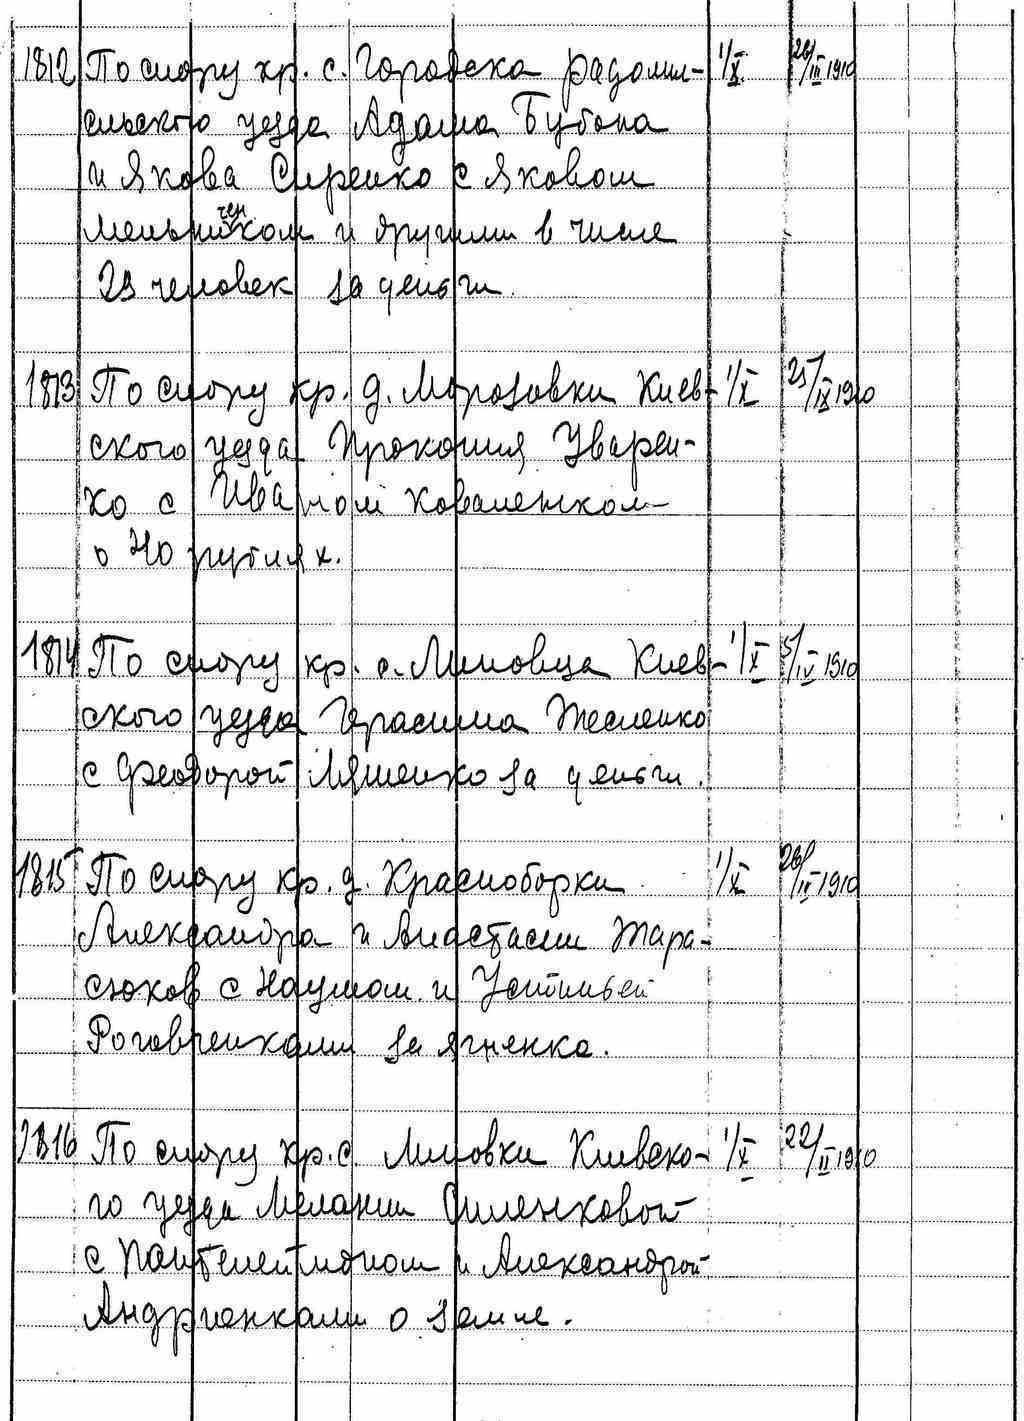 1812 По спору кр. с. Городска радомы- 1/X. 26/III 1910
сльского уезда Адама Бубона
и Якова Сиренко с Яковом
Мельниченком и другими в числе
23 человек за деньги.
1813 По спору кр. д. Морозовки Киев- 1/X 25/IX 1910
ского уезда Прокопия Уварен-
ко с Иваном Коваленком
о 40 рублях.
1814 По спору кр. с. Липовца Киев- 1/X 5/IV 1910
ского уезда Герасима Тесленко
с Феодорой Ляшенко за деньги.
1815 По спору кр. д. Красноборки 1/X 26/IV 1910
Александра и Анастасии Тара-
сюков с Наумом и Устиньей
Роговченками за ягненка.
1816 По спору кр. с. Липовки Киевско- 1/X 22/II 1910
го уезда Мелании
с Пантелеймоном и Александрой
Андриенками о земле.